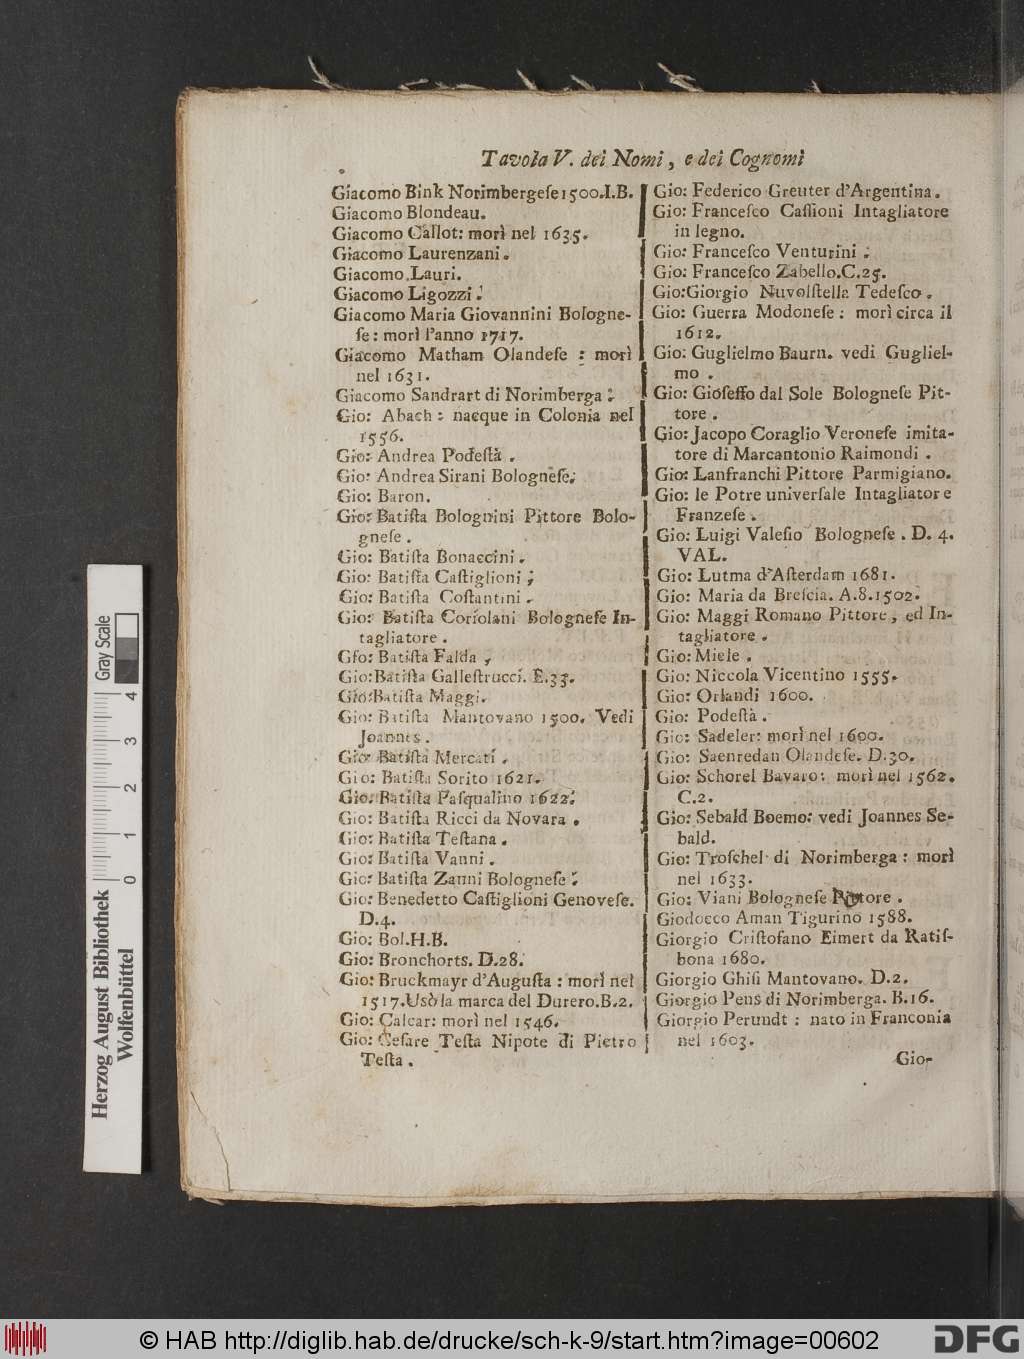 Tavola V. dei Nomi, e dei Cognomi
Giacomo Bink Norimbergeſe 1500.I.B.
Giacomo Blondeau.
Giacomo Callot: morì nel 1635.
Giacomo Laurenzani.
Giacomo Lauri.
Giacomo Ligozzi.
Giacomo Maria Giovannini Bologne-
ſe: morì l'anno 1717.
Giacomo Matham Olandeſe: morì
nel 1631.
Giacomo Sandrart di Norimberga:
Gio: Abach: nacque in Colonia nel
1556.
Gio: Andrea Podeſtà.
Gio: Andrea Sirani Bologneſe.
Gio: Baron.
Gio: Batiſta Bolognini Pittore Bolo-
gneſe.
Gio: Batiſta Bonaccini.
Gio: Batiſta Caſtiglioni;
Gio: Batiſta Coſtantini.
Gio: Batiſta Coriolani Bologneſe In-
tagliatore.
Gio: Batiſta Falda,
Gio: Batiſta Galleſtrucci. E.33.
Gio: Batiſta Maggi.
Gio: Batiſta Mantovano 1500. Vedi
Joannes.
Gio: Batiſta Mercati.
Gio: Batiſta Sorito 1621.
Gio: Batiſta Paſqualino 1622.
Gio: Batiſta Ricci da Novara.
Gio: Batiſta Teſtana.
Gio: Batiſta Vanni.
Gio: Batiſta Zanni Bologneſe.
Gio: Benedetto Caſtiglioni Genoveſe.
D.4.
Gio: Bol.H.B.
Gio: Bronchorts. D.28.
Gio: Bruckmayr d'Auguſta: morì nel
1517. Usò la marca del Durero.B.2.
Gio: Calcar: morì nel 1546.
Gio: Ceſare Teſta Nipote di Pietro
Teſta.
Gio: Federico Greuter d'Argentina.
Gio: Franceſco Caſſioni Intagliatore
in legno.
Gio: Franceſco Venturini:
Gio: Franceſco Zabello.C.25.
Gio: Giorgio Nuvolſtella Tedeſco.
Gio: Guerra Modoneſe: morì circa il
1612.
Gio: Guglielmo Baurn. vedi Gugliel-
mo.
Gio: Gioſeffo dal Sole Bologneſe Pit-
tore.
Gio: Jacopo Coraglio Veroneſe imita-
tore di Marcantonio Raimondi.
Gio: Lanfranchi Pittore Parmigiano.
Gio: le Potre univerſale Intagliatore
Franzeſe.
Gio: Luigi Valeſio Bologneſe. D. 4.
VAL.
Gio: Lutma d'Aſterdam 1681.
Gio: Maria da Breſcia. A.8.1502.
Gio: Maggi Romano Pittore, ed In-
tagliatore.
Gio: Miele.
Gio: Niccola Vicentino 1555.
Gio: Orlandi 1600.
Gio: Podeſtà.
Gio: Sadeler: morì nel 1600.
Gio: Saenredan Olandeſe. D.30.
Gio: Schorel Bavaro: morì nel 1562.
C.2.
Gio: Sebald Boemo: vedi Joannes Se-
bald.
Gio: Troſchel di Norimberga: morì
nel 1633.
Gio: Viani Bologneſe Pittore.
Giodoeco Aman Tigurino 1588.
Giorgio Criſtofano Eimert da Ratiſ-
bona 1680.
Giorgio Ghiſi Mantovano. D.2.
Giorgio Pens di Norimberga. B.16.
Giorgio Perundt: nato in Franconia
nel 1603.
Gio-
Gray Scale
0 1 2 3 4
Herzog August Bibliothek
Wolfenbüttel
© HAB http://diglib.hab.de/drucke/sch-k-9/start.htm?image=00602
DFG